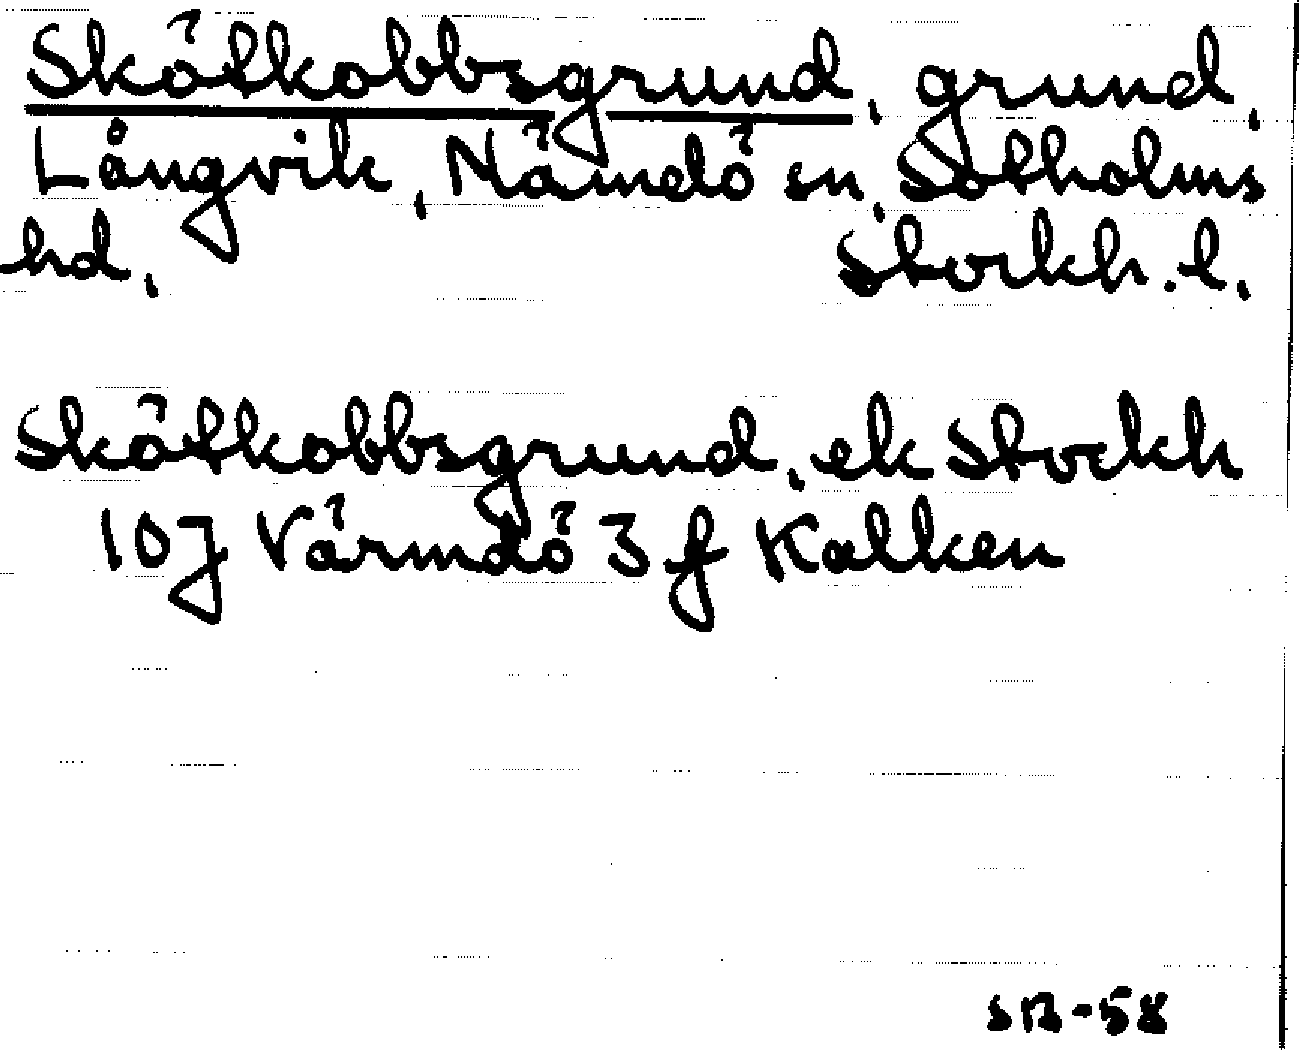 Skötkobbsgrund, grund,
Långvik, Nämdö sn, Sotholms
hd, Stockh. l.
Skötkobbsgrund, ek Stockh
10j Värmdö 3 f Kalken
SR-58